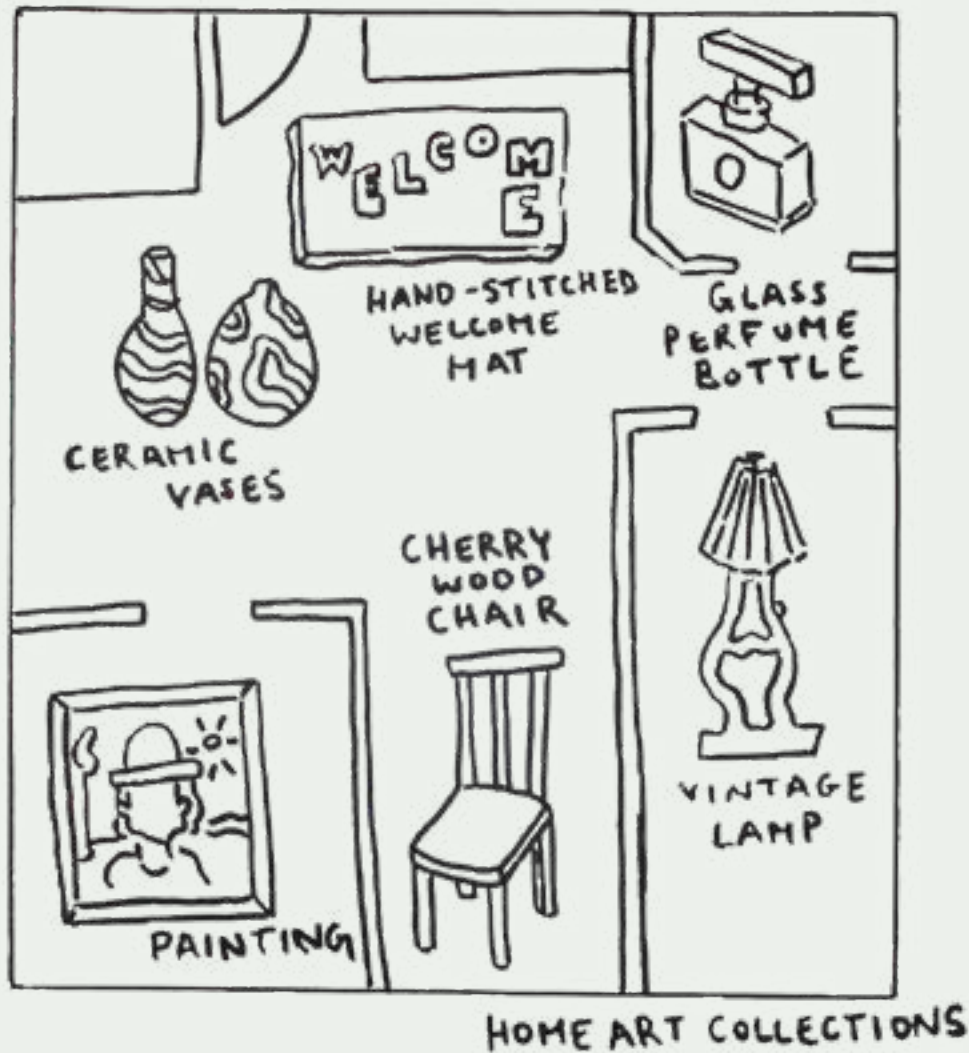 WELCOME
HAND-STITCHED
WELCOME
MAT
GLASS
PERFUME
BOTTLE
CERAMIC
VASES
CHERRY
WOOD
CHAIR
VINTAGE
LAMP
PAINTING
HOME ART COLLECTIONS